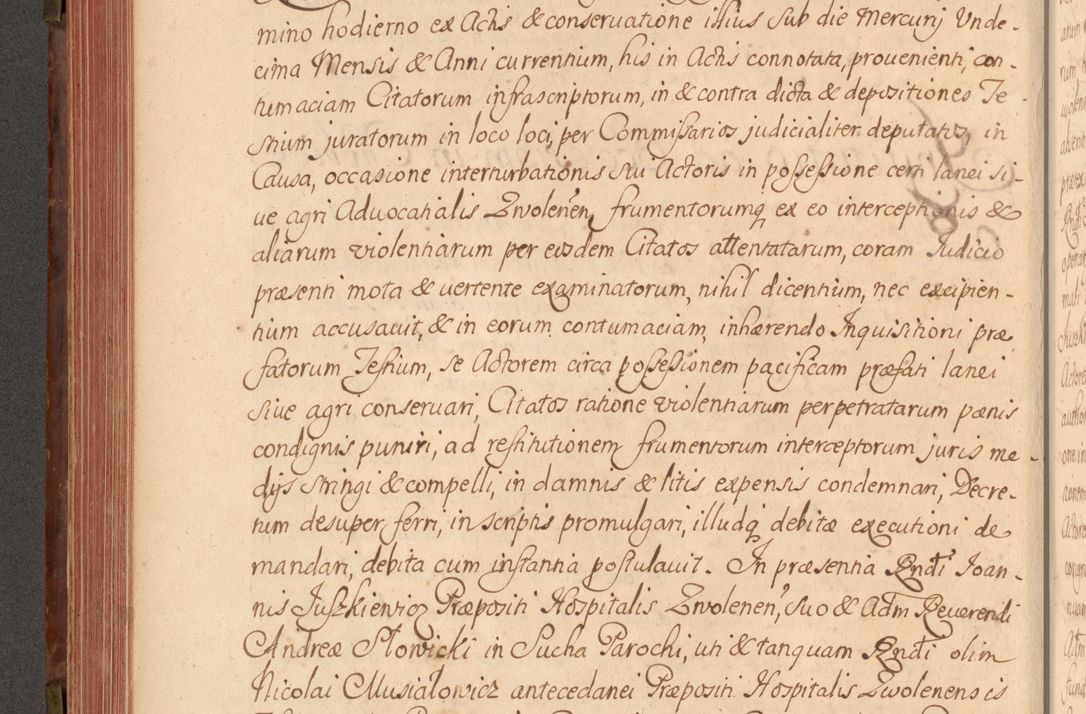 mino hodierno ex Actis & conservatione illius sub die Mercurij Unde-
cima Mensis & Anni currentium, his in Actis connotata, provenienti, con-
tumaciam Citatorum infrascriptorum, in & contra dicta & depositiones Te-
stium juratorum in loco loci, per Commissarios judicialiter deputatos, in
Causa, occasione interturbationis sui Actoris in possessione certi lanei si-
ue agri Aduocatialis Zwolenen, frumentorumq ex eo interceptionis &
aliarum violentiarum per eosdem Citatos attentatarum, coram Judicio
præsenti mota & uertente examinatorum, nihil dicentium, nec excipien-
tium accusauit, & in eorum contumaciam, inhærendo Inquisitioni præ
fatorum Testium, se Actorem circa possessionem pacificam præfati lanei
siue agri conseruari, Citatos ratione violentiarum perpetratarum pœnis
condignis puniri, ad restitutionem frumentorum interceptorum juris me-
dijs stringi & compelli, in damnis & litis expensis condemnari, Decre-
tum desuper ferri, in scriptis promulgari, illudq debitæ executioni de
mandari, debita cum instantia postulauit. In præsentia Rndi Joan-
nis Juszkiewicz Præpositi Hospitalis Zwolenen, suo & Adm Reuerendi
Andreæ Słowicki in Sucha Parochi, uti & tanquam Rndi olim
Nicolai Musiałowicz antecedanei Præpositi Hospitalis Zwolenensis